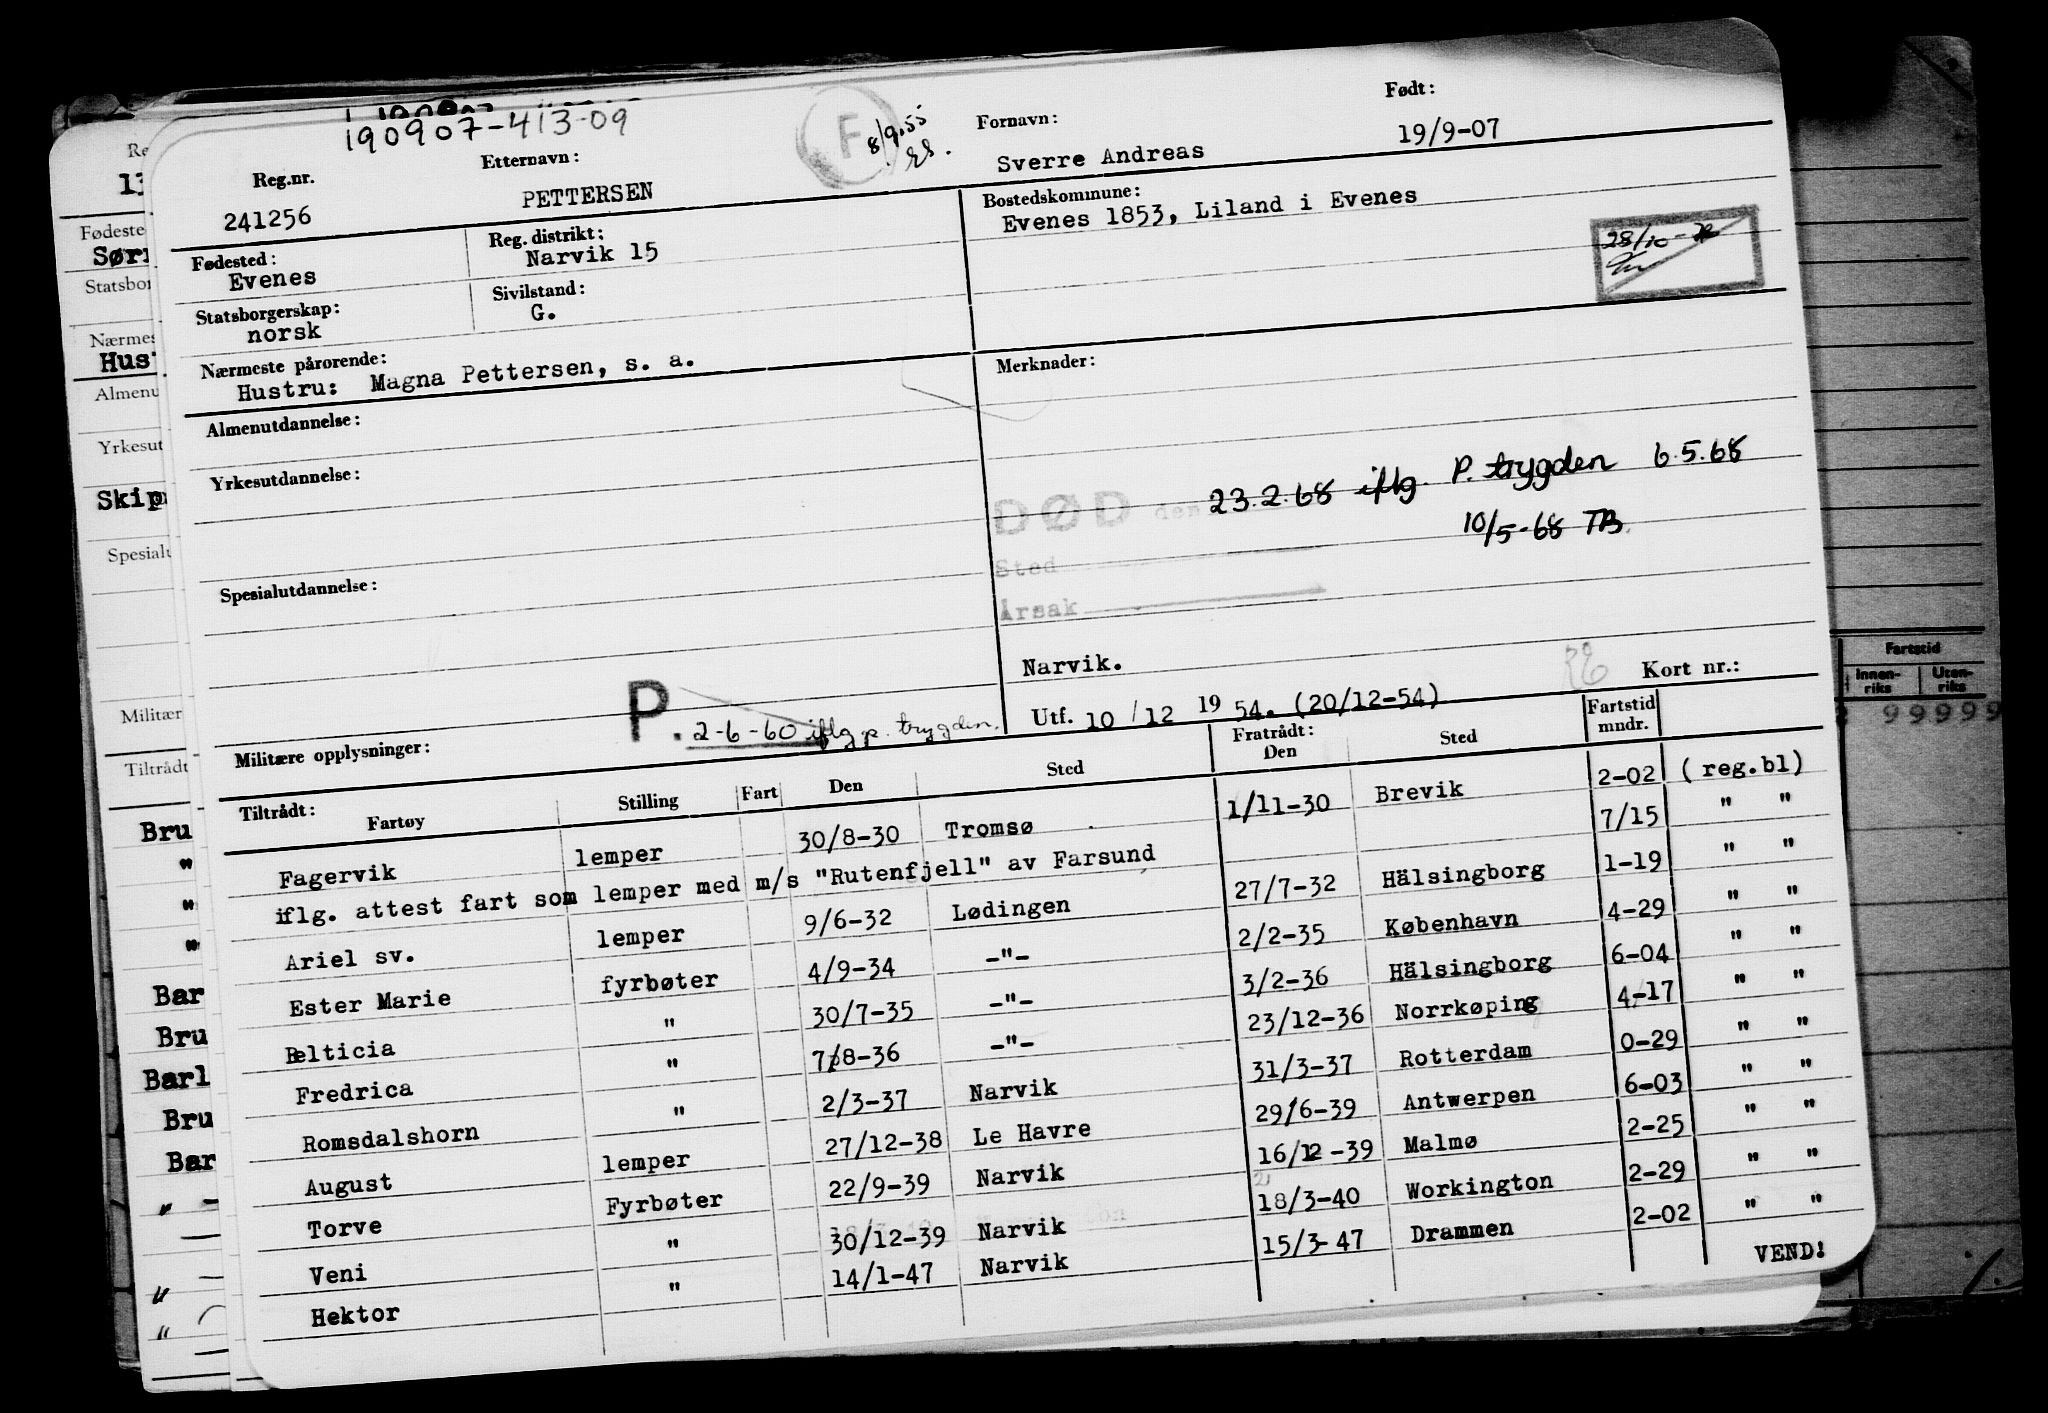 190907-413-09
F 8/9.55
Reg.nr. Etternavn: Fornavn: Født:
241256 PETTERSEN Sverre Andreas 19/9-07
Fødested: Reg. distrikt: Bostedskommune:
Evenes Narvik 15 Evenes 1853, Liland i Evenes
Statsborgerskap: Sivilstand:
norsk G.
28/10-
Nærmeste pårørende: Merknader:
Hustru: Magna Pettersen, s. a.
Almenutdannelse:
Yrkesutdannelse:
DØD den 23.2.68 iflg. P. trygden 6.5.68
10/5-68 TB.
Sted
Årsak
Spesialutdannelse:
Narvik.
P. 2-6-60 iflg p. trygden.
Utf. 10/12 1954. (20/12-54) Kort nr.:
Militære opplysninger:
Tiltrådt: Fratrådt: Fartstid
Fartøy Stilling Fart Den Sted Den Sted mndr.
Fagervik lemper 30/8-30 Tromsø 1/11-30 Brevik 2-02 (reg.bl)
iflg. attest fart som lemper med m/s "Rutenfjell" av Farsund 7/15 " "
Ariel sv. lemper 9/6-32 Lødingen 27/7-32 Hälsingborg 1-19 " "
Ester Marie fyrbøter 4/9-34 -"- 2/2-35 København 4-29 " "
Belticia " 30/7-35 -"- 3/2-36 Hälsingborg 6-04 " "
Fredrica " 7/8-36 -"- 23/12-36 Norrkøping 4-17 " "
Romsdalshorn " 2/3-37 Narvik 31/3-37 Rotterdam 0-29 " "
August lemper 27/12-38 Le Havre 29/6-39 Antwerpen 6-03 " "
Torve Fyrbøter 22/9-39 Narvik 16/12-39 Malmø 2-25 " "
Veni " 30/12-39 Narvik 18/3-40 Workington 2-29 " "
Hektor " 14/1-47 Narvik 15/3-47 Drammen 2-02 " "
VEND!
Re
Fødeste
Sørr
Statsbor
Nærmes
Hust
Almenu
Yrkesut
Skip
Spesialu
Militær
Tiltrådt
Bru
"
"
"
Bar
Bru
Barl
Bru
Bar
" -
"
"
Fartstid
Innen-riks Uten-riks
99999